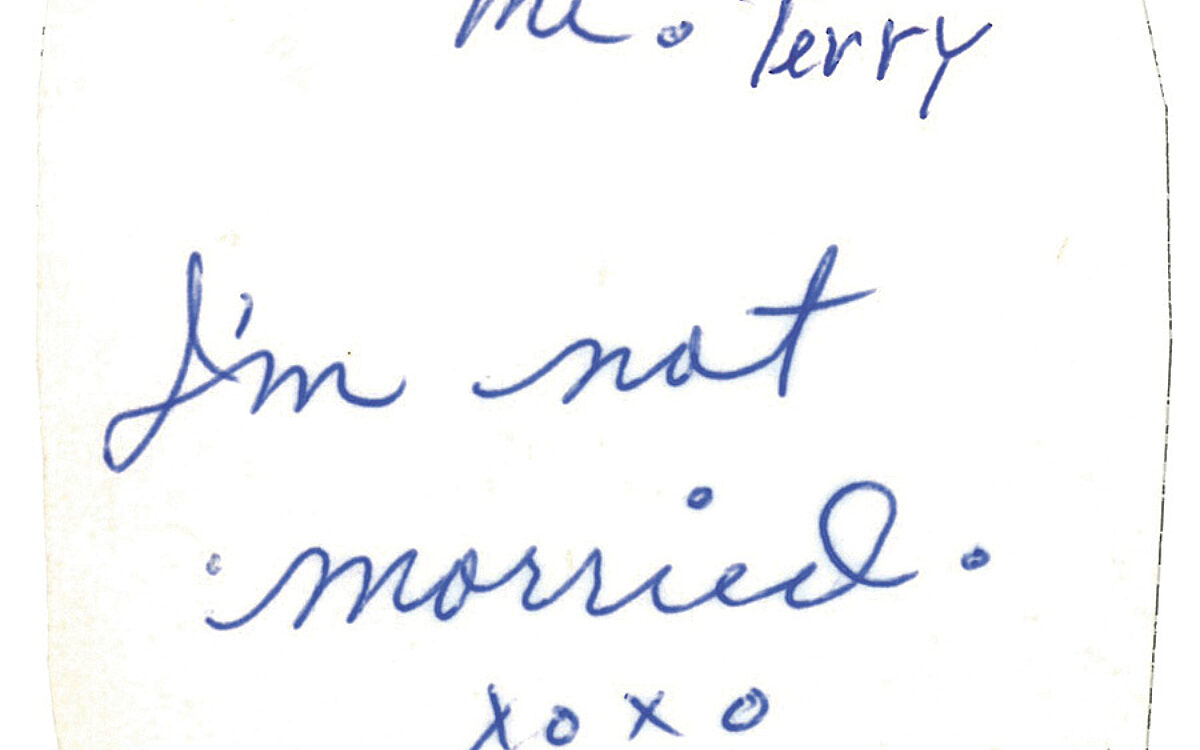 me. Terry
I'm not
married.
xoxo